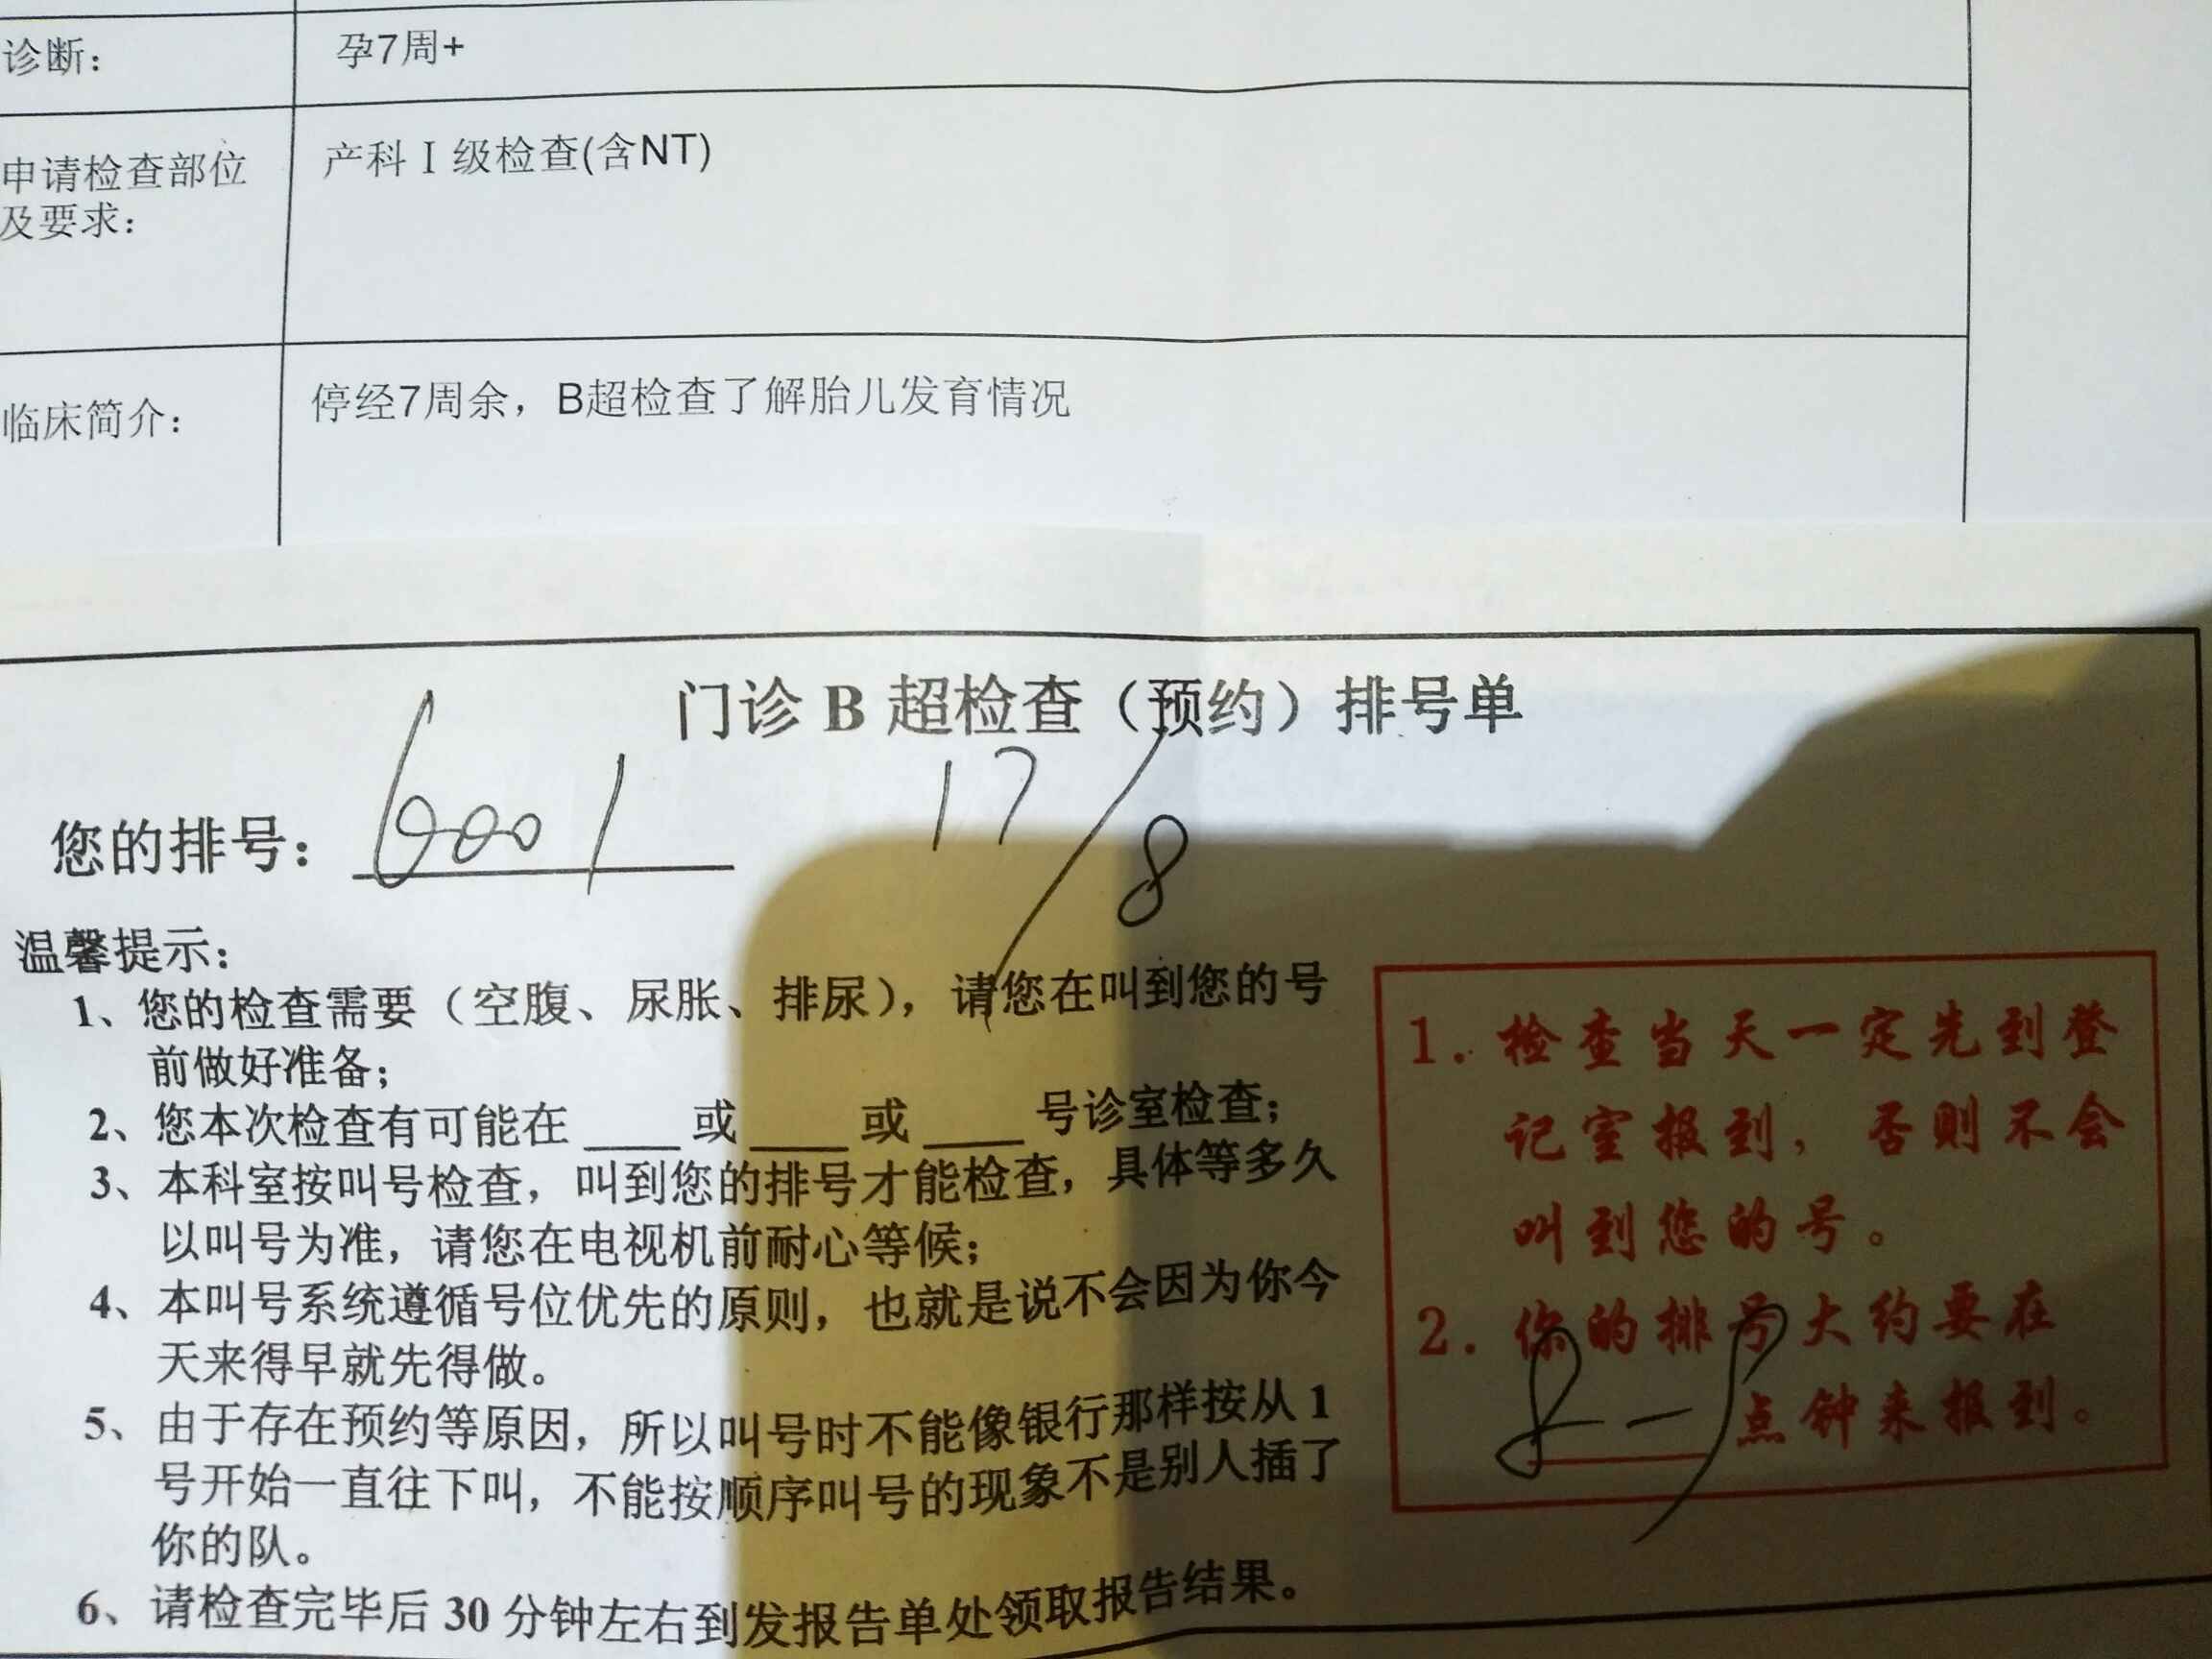 诊断： 孕7周+
申请检查部位 产科Ⅰ级检查(含NT)
及要求：
临床简介： 停经7周余，B超检查了解胎儿发育情况
门诊 B 超检查（预约）排号单
您的排号： 6001 17/8
温馨提示：
1、您的检查需要（空腹、尿胀、排尿），请您在叫到您的号
前做好准备；
2、您本次检查有可能在____或____或____号诊室检查；
3、本科室按叫号检查，叫到您的排号才能检查，具体等多久
以叫号为准，请您在电视机前耐心等候；
4、本叫号系统遵循号位优先的原则，也就是说不会因为你今
天来得早就先得做。
5、由于存在预约等原因，所以叫号时不能像银行那样按从 1
号开始一直往下叫，不能按顺序叫号的现象不是别人插了
你的队。
6、请检查完毕后 30 分钟左右到发报告单处领取报告结果。
1. 检查当天一定先到登
记室报到，否则不会
叫到您的号。
2. 你的排号大约要在
8-9点钟来报到。